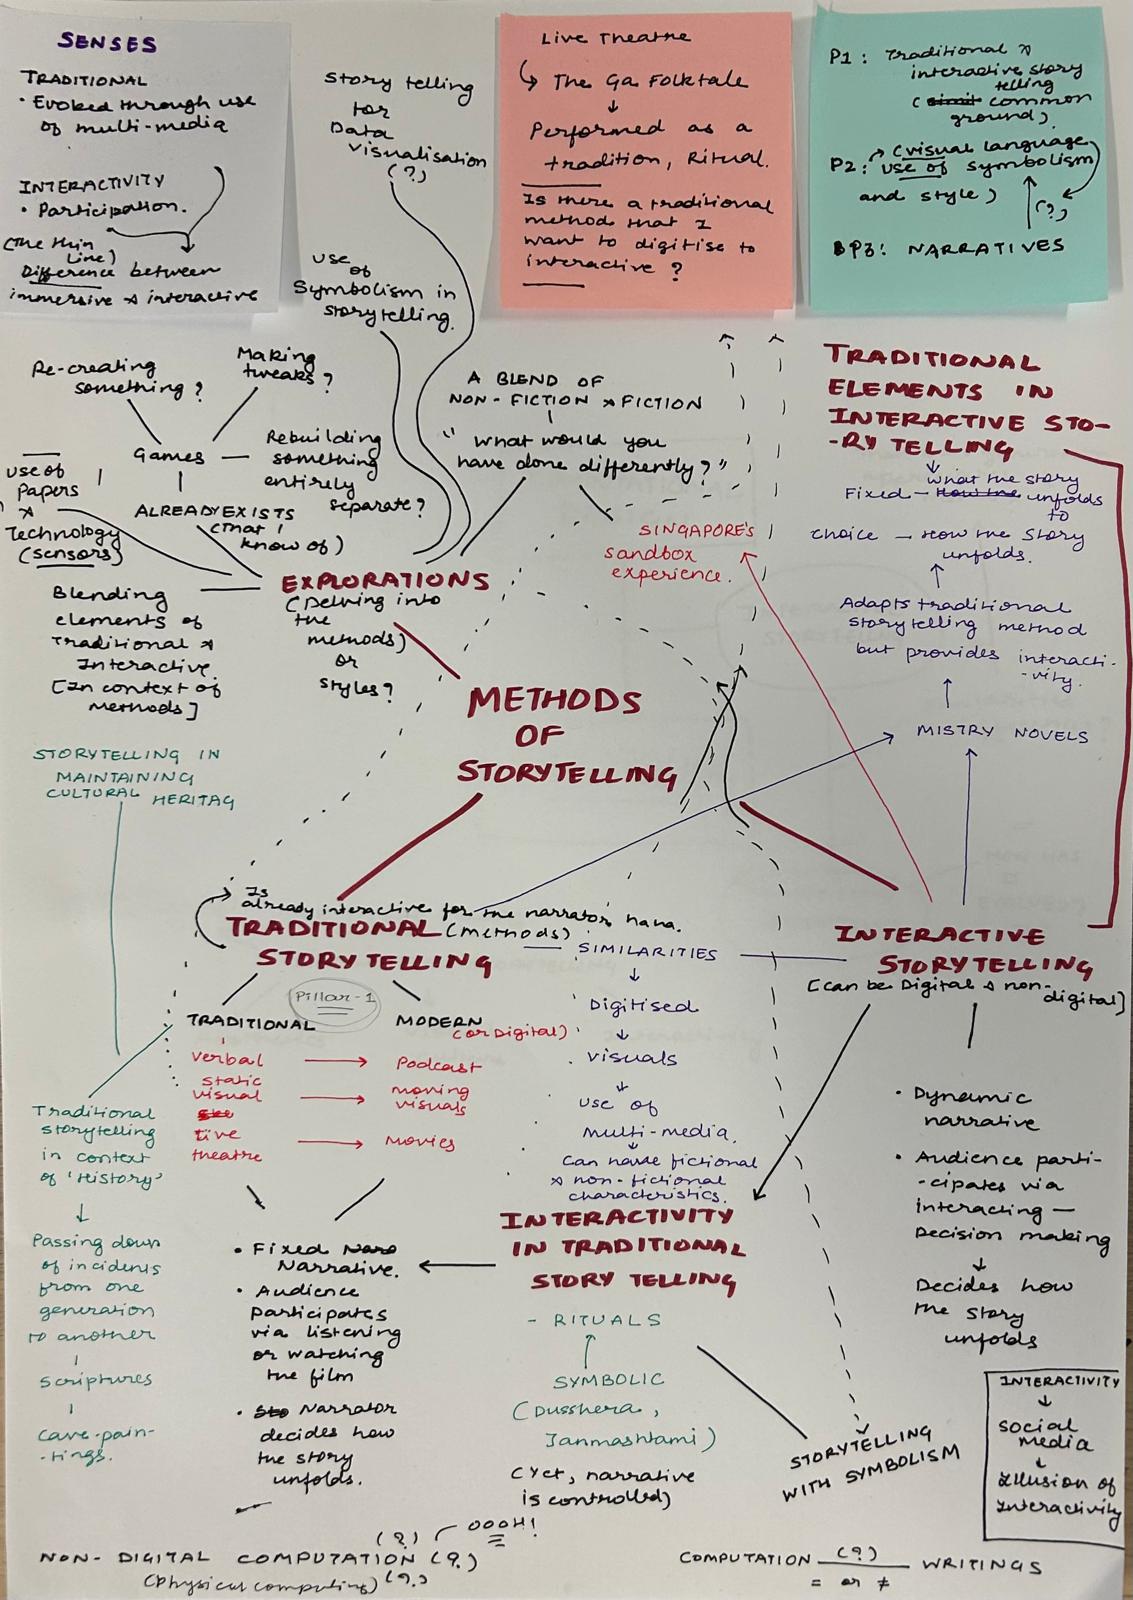 SENSES
TRADITIONAL
• Evoked through use
of multi-media
INTERACTIVITY
• Participation.
(The thin
line)
Difference between
immersive & interactive
Story telling
for
Data
visualisation
(?)
use
of
Symbolism in
storytelling.
Live Theatre
The Ga Folktale
Performed as a
tradition, Ritual.
Is there a traditional
method that I
want to digitise to
interactive ?
P1 : Traditional &
interactive story
telling
( common
ground)
P2 : (visual language,
use of symbolism
and style)
(?)
P3: NARRATIVES
Re-creating
something ?
Making
tweaks ?
Games
Rebuilding
something
entirely
separate ?
ALREADY EXISTS
(that I
know of)
use of
Papers
&
Technology
(sensors)
A BLEND OF
NON-FICTION & FICTION
" What would you
have done differently? "
SINGAPORE'S
sandbox
experience.
EXPLORATIONS
(Delving into
the
methods)
or
styles?
Blending
elements of
Traditional &
Interactive
[In context of
Methods]
TRADITIONAL
ELEMENTS IN
INTERACTIVE STO-
-RY TELLING
what the story
Fixed - How the unfolds
to
choice - How the story
unfolds.
Adapts traditional
storytelling method
but provides interacti-
-vity.
MISTRY NOVELS
METHODS
OF
STORYTELLING
STORYTELLING IN
MAINTAINING
CULTURAL HERITAG
Is
already interactive for the narrator
TRADITIONAL (Methods)
STORY TELLING
Pillar-1
TRADITIONAL
MODERN
(or Digital)
verbal
Podcast
static
visual
moving
visuals
live
theatre
movies
SIMILARITIES
Digitised
visuals
use of
multi-media.
Can have fictional
& non-fictional
characteristics.
INTERACTIVE
STORYTELLING
[can be Digital & non-
digital]
• Dynamic
narrative
• Audience parti-
-cipates via
interacting —
Decision making
Decides how
the story
unfolds
Traditional
storytelling
in context
of 'History'
Passing down
of incidents
from one
generation
to another
Scriptures
Cave-pain-
-tings.
• Fixed Narr
Narrative.
• Audience
Participates
via listening
or watching
the film
• Narrator
decides how
the story
unfolds.
INTERACTIVITY
IN TRADITIONAL
STORY TELLING
- RITUALS
SYMBOLIC
(Dusshera,
Janmashtami)
(Yet, narrative
is controlled)
STORYTELLING
WITH SYMBOLISM
INTERACTIVITY
SOCIAL
MEDIA
Illusion of
Interactivity
(?) OOOH!
NON-DIGITAL COMPUTATION (?)
(Physical computing) (?)
COMPUTATION (?) WRITINGS
= or ≠